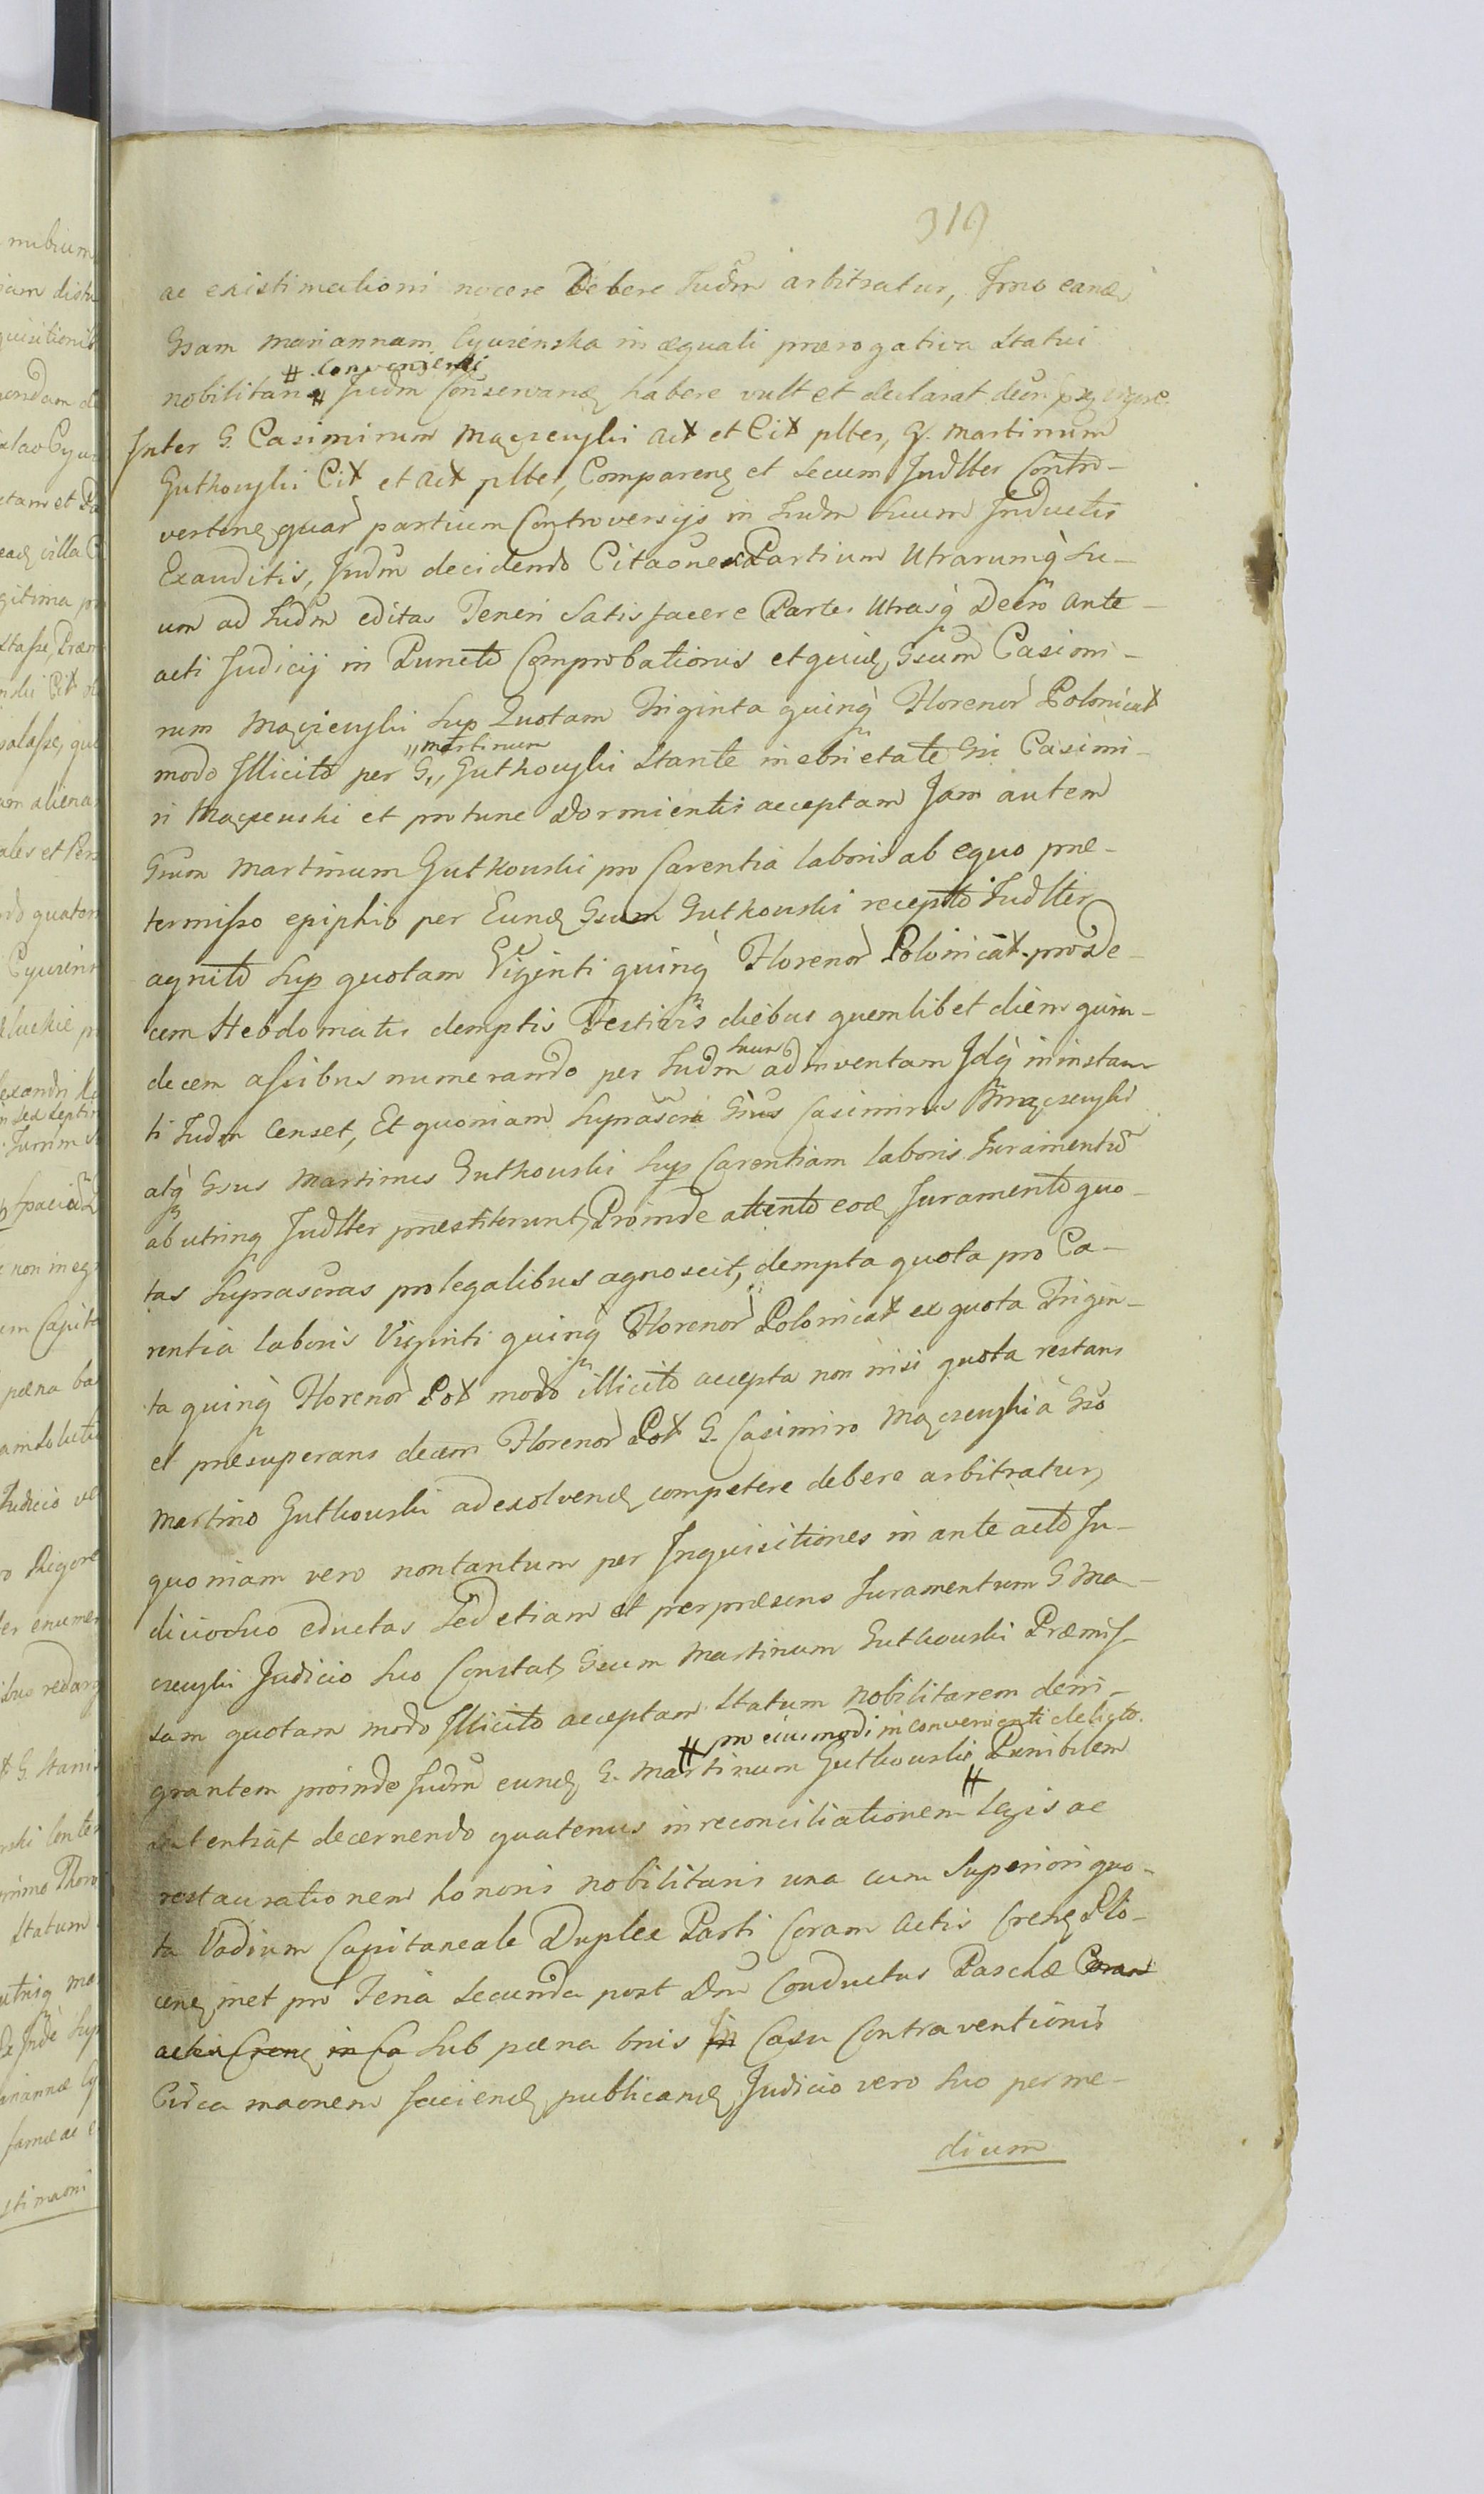 319
ac existimationi nocere Debere Iudm arbitratur, Imo eand
Gsam Mariannam Cyvrenska in æquali prærogativa Status
nobilitaris # convenienti Iudm Conservand habere vult et declarat decri pntis vigore.
Inter G. Casimirum Maczewski Act et Cit pltes, G. Martinum
Gutkowski Cit et Act pltes, Comparend et Secum Judltter Contro-
vertend quar partium Controversijs in Iudm Suum Inductis
Exauditis, Iudm decidendo Citaones Partium Utrarumq Su-
um ad Iudm editas Teneri Satisfacere Partes Utrasq Decro Ante-
acti Judicij in Puncto Comprobationis et quid, Gsum Casimi-
rum Maczewski Sup Quotam Triginta quinq Florenor Polonicat
modo Illicito per G. „Martinum Gutkowski Stante inebrietate Gsi Casimi-
ri Maczewski et pro tunc Dormientis acceptam Jam autem
Gsum Martinum Gutkowski pro Carentia laboris ab equo præ-
termisso epiphio per Eund Gsum Gutkowski recepto Iudltter
agnito Sup quotam Viginti quinq Florenor Polonicat pro De-
cem Hebdomatis demptis Festivis diebus quemlibet diem quin-
decem assibus numerando per Iudm Suum adinventam Idq in instan-
ti Iudm Censet, Et quoniam Suprascri Gsus Casimirus Maczewski
atq Gsus Martinus Gutkowski Sup Carentiam laboris Iuramentu
ab utrinq Judltter præstiterunt, Proinde attento eod Juramento quo-
tas Suprascras pro legalibus agnoscit, dempta quota pro Ca-
rentia laboris Viginti quinq Florenor Polonicat ex quota Trigin-
ta quinq Florenor Pol modo illicito accepta non nisi quota restans
et præsuperans decem Florenor Pol G. Casimiro Maczewski à Gso
Martino Gutkowski ad exolvend competere debere arbitratur,
quoniam vero non tantum per Inquisitiones in ante acto Ju-
dicio Suo eductas Sed etiam et per præsens Iuramentum G Ma-
czewski Judicio Suo Constat, Gsum Martinum Gutkowski Præmis-
sam quotam modo Illicito acceptam Statum nobilitarem deni-
grantem proinde Iudm eund G. Martinum Gutkowski # pro eiusmodi inconvenienti delicto. Punibilem
Sentensiat decernendo quatenus in reconciliationem # legis ac
restaurationem honoris nobilitaris una cum Superiori quo-
ta Vadium Capitaneale Duplex Parti Coram Actis Crens Plo-
cens met pro Feria Secunda post Dm Conductus Paschæ Coram
actis Crens in Ca Sub pæna bnis in Casu Contraventionis
Circa maonem faciend publicand Judicio vero Suo per me-
dium